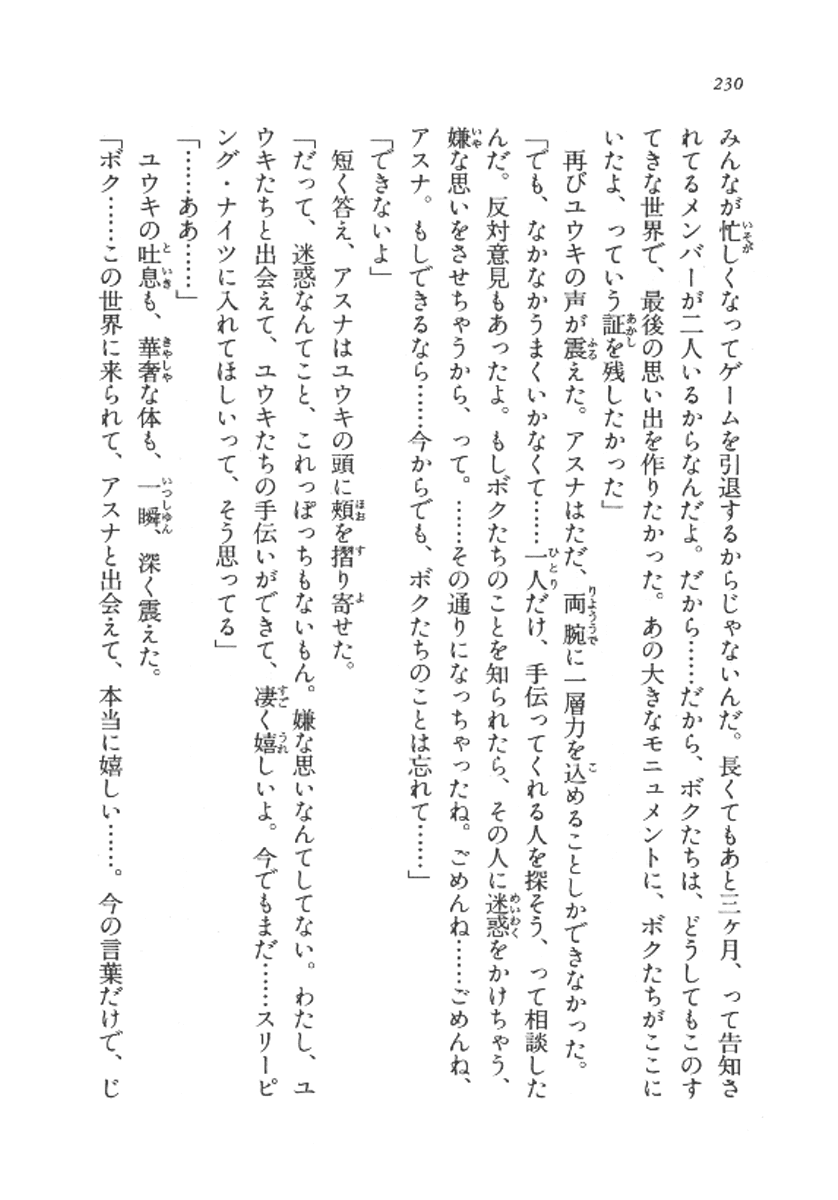 230
みんなが忙しくなってゲームを引退するからじゃないんだ。長くてもあと三ヶ月、って告知さ
れてるメンバーが二人いるからなんだよ。だから……だから、ボクたちは、どうしてもこのす
てきな世界で、最後の思い出を作りたかった。あの大きなモニュメントに、ボクたちがここに
いたよ、っていう証を残したかった」
再びユウキの声が震えた。アスナはただ、両腕に一層力を込めることしかできなかった。
「でも、なかなかうまくいかなくて……一人だけ、手伝ってくれる人を探そう、って相談した
んだ。反対意見もあったよ。もしボクたちのことを知られたら、その人に迷惑をかけちゃう、
嫌な思いをさせちゃうから、って。……その通りになっちゃったね。ごめんね……ごめんね、
アスナ。もしできるなら……今からでも、ボクたちのことは忘れて……」
「できないよ」
短く答え、アスナはユウキの頭に頬を摺り寄せた。
「だって、迷惑なんてこと、これっぽっちもないもん。嫌な思いなんてしてない。わたし、ユ
ウキたちと出会えて、ユウキたちの手伝いができて、凄く嬉しいよ。今でもまだ……スリーピ
ング・ナイツに入れてほしいって、そう思ってる」
「……ああ……」
ユウキの吐息も、華奢な体も、一瞬、深く震えた。
「ボク……この世界に来られて、アスナと出会えて、本当に嬉しい……。今の言葉だけで、じ